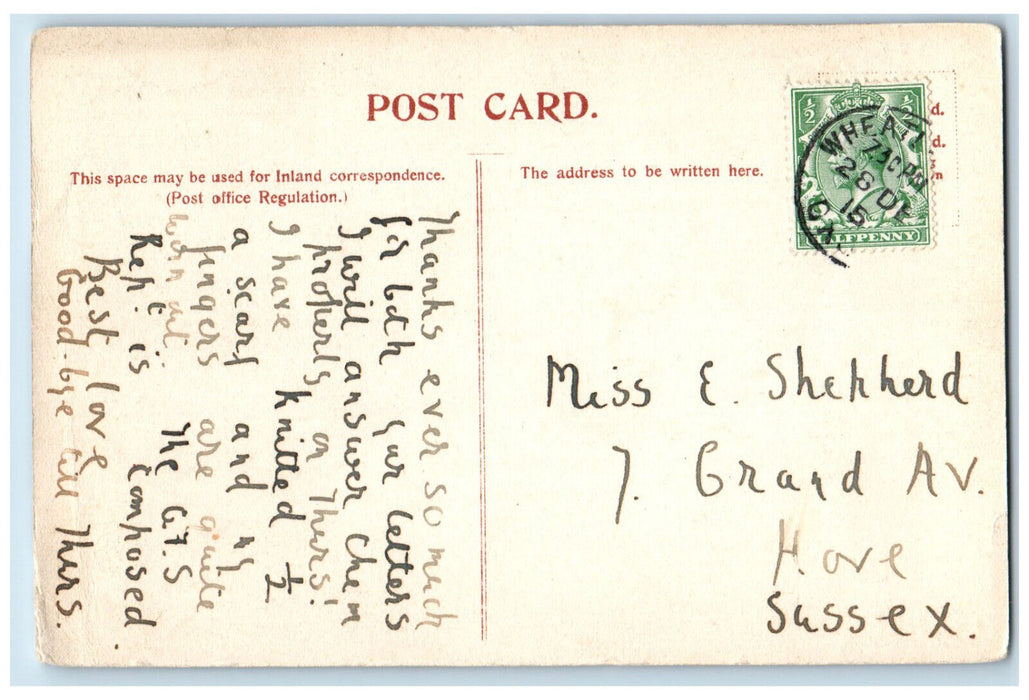 POST CARD.
This space may be used for Inland correspondence.
(Post office Regulation.)
The address to be written here.
Thanks ever so much
for both your letters
I will answer them
properly on Thurs!
I have knitted ½
a scarf and my
fingers are quite
worn out. The G.F.S
Rep: is composed.
Best love
Good-bye till Thurs.
½ ½
HALFPENNY
WHEATL
7 30 PM
28 DE
15
d.
d.
n
Miss E. Shepherd
7. Grand Av.
Hove
Sussex.